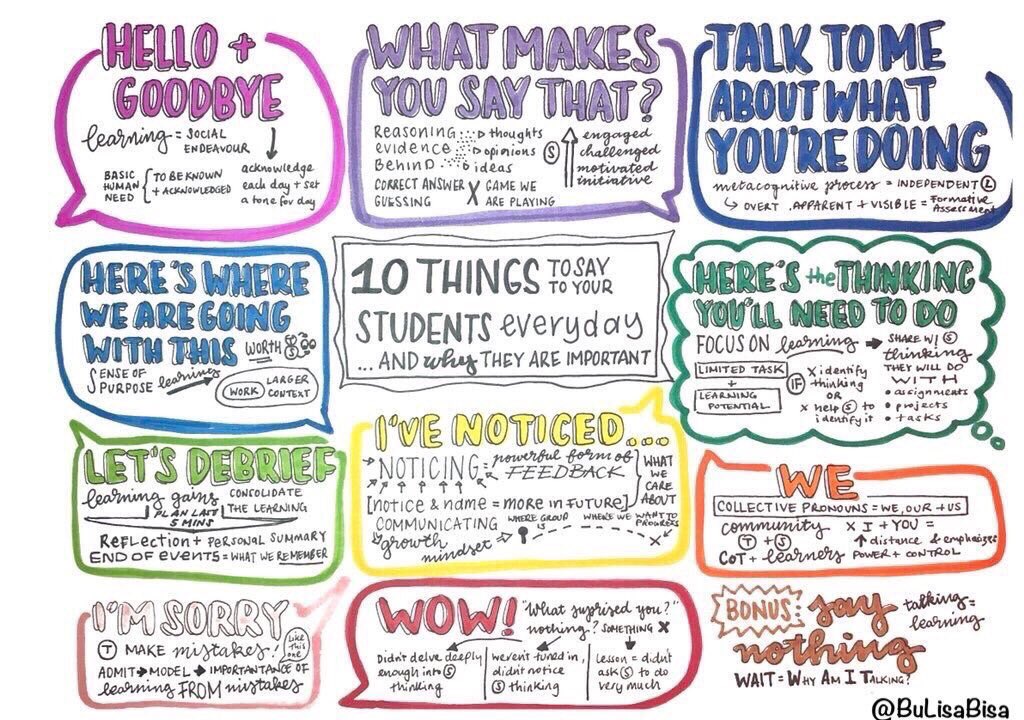 HELLO +
GOODBYE
learning = SOCIAL
ENDEAVOUR
BASIC
HUMAN
NEED
TO BE KNOWN
+ ACKNOWLEDGED
acknowledge
each day + set
a tone for day
WHAT MAKES
YOU SAY THAT?
REASONING
evidence
BEHIND
thoughts
opinions
ideas
S
engaged
challenged
motivated
initiative
CORRECT ANSWER X GAME WE
GUESSING ARE PLAYING
TALK TO ME
ABOUT WHAT
YOU'RE DOING
metacognitive process = INDEPENDENT L
OVERT, APPARENT + VISIBLE = Formative
Assessment
HERE'S WHERE
WE ARE GOING
WITH THIS
WORTH
SENSE OF
PURPOSE learning
WORK LARGER
CONTEXT
10 THINGS TO SAY
TO YOUR
STUDENTS everyday
... AND why THEY ARE IMPORTANT
HERE'S the THINKING
YOU'LL NEED TO DO
FOCUS ON learning
SHARE W/ S
thinking
THEY WILL DO
WITH
• assignments
• projects
• tasks
LIMITED TASK
+
LEARNING
POTENTIAL
IF
X identify
thinking
OR
X help S to
identify it
LET'S DEBRIEF
learning gains CONSOLIDATE
THE LEARNING
PLAN LAST
5 MINS
REFLECTION + PERSONAL SUMMARY
END OF EVENTS = WHAT WE REMEMBER
I'VE NOTICED...
NOTICING = powerful form of
FEEDBACK
[notice & name = more in FUTURE]
WHAT
WE
CARE
ABOUT
COMMUNICATING
growth
mindset
WHERE GROUP
IS
WHERE WE WANT TO
PROGRESS
X
WE
COLLECTIVE PRONOUNS = WE, OUR + US
community
T + S
COT + learners
X I + YOU =
↑ distance & emphasizes
POWER + CONTROL
I'M SORRY
T MAKE mistakes!
Like
This
one
ADMIT → MODEL → IMPORTANTANCE OF
learning FROM mistakes
WOW!
"What suprised you?"
nothing? SOMETHING X
Didn't delve deeply
enough into S
thinking
weren't tuned in,
didn't notice
S thinking
Lesson = didn't
ask S to do
very much
BONUS: say
nothing
talking =
learning
WAIT = WHY AM I TALKING?
@BuLisaBisa